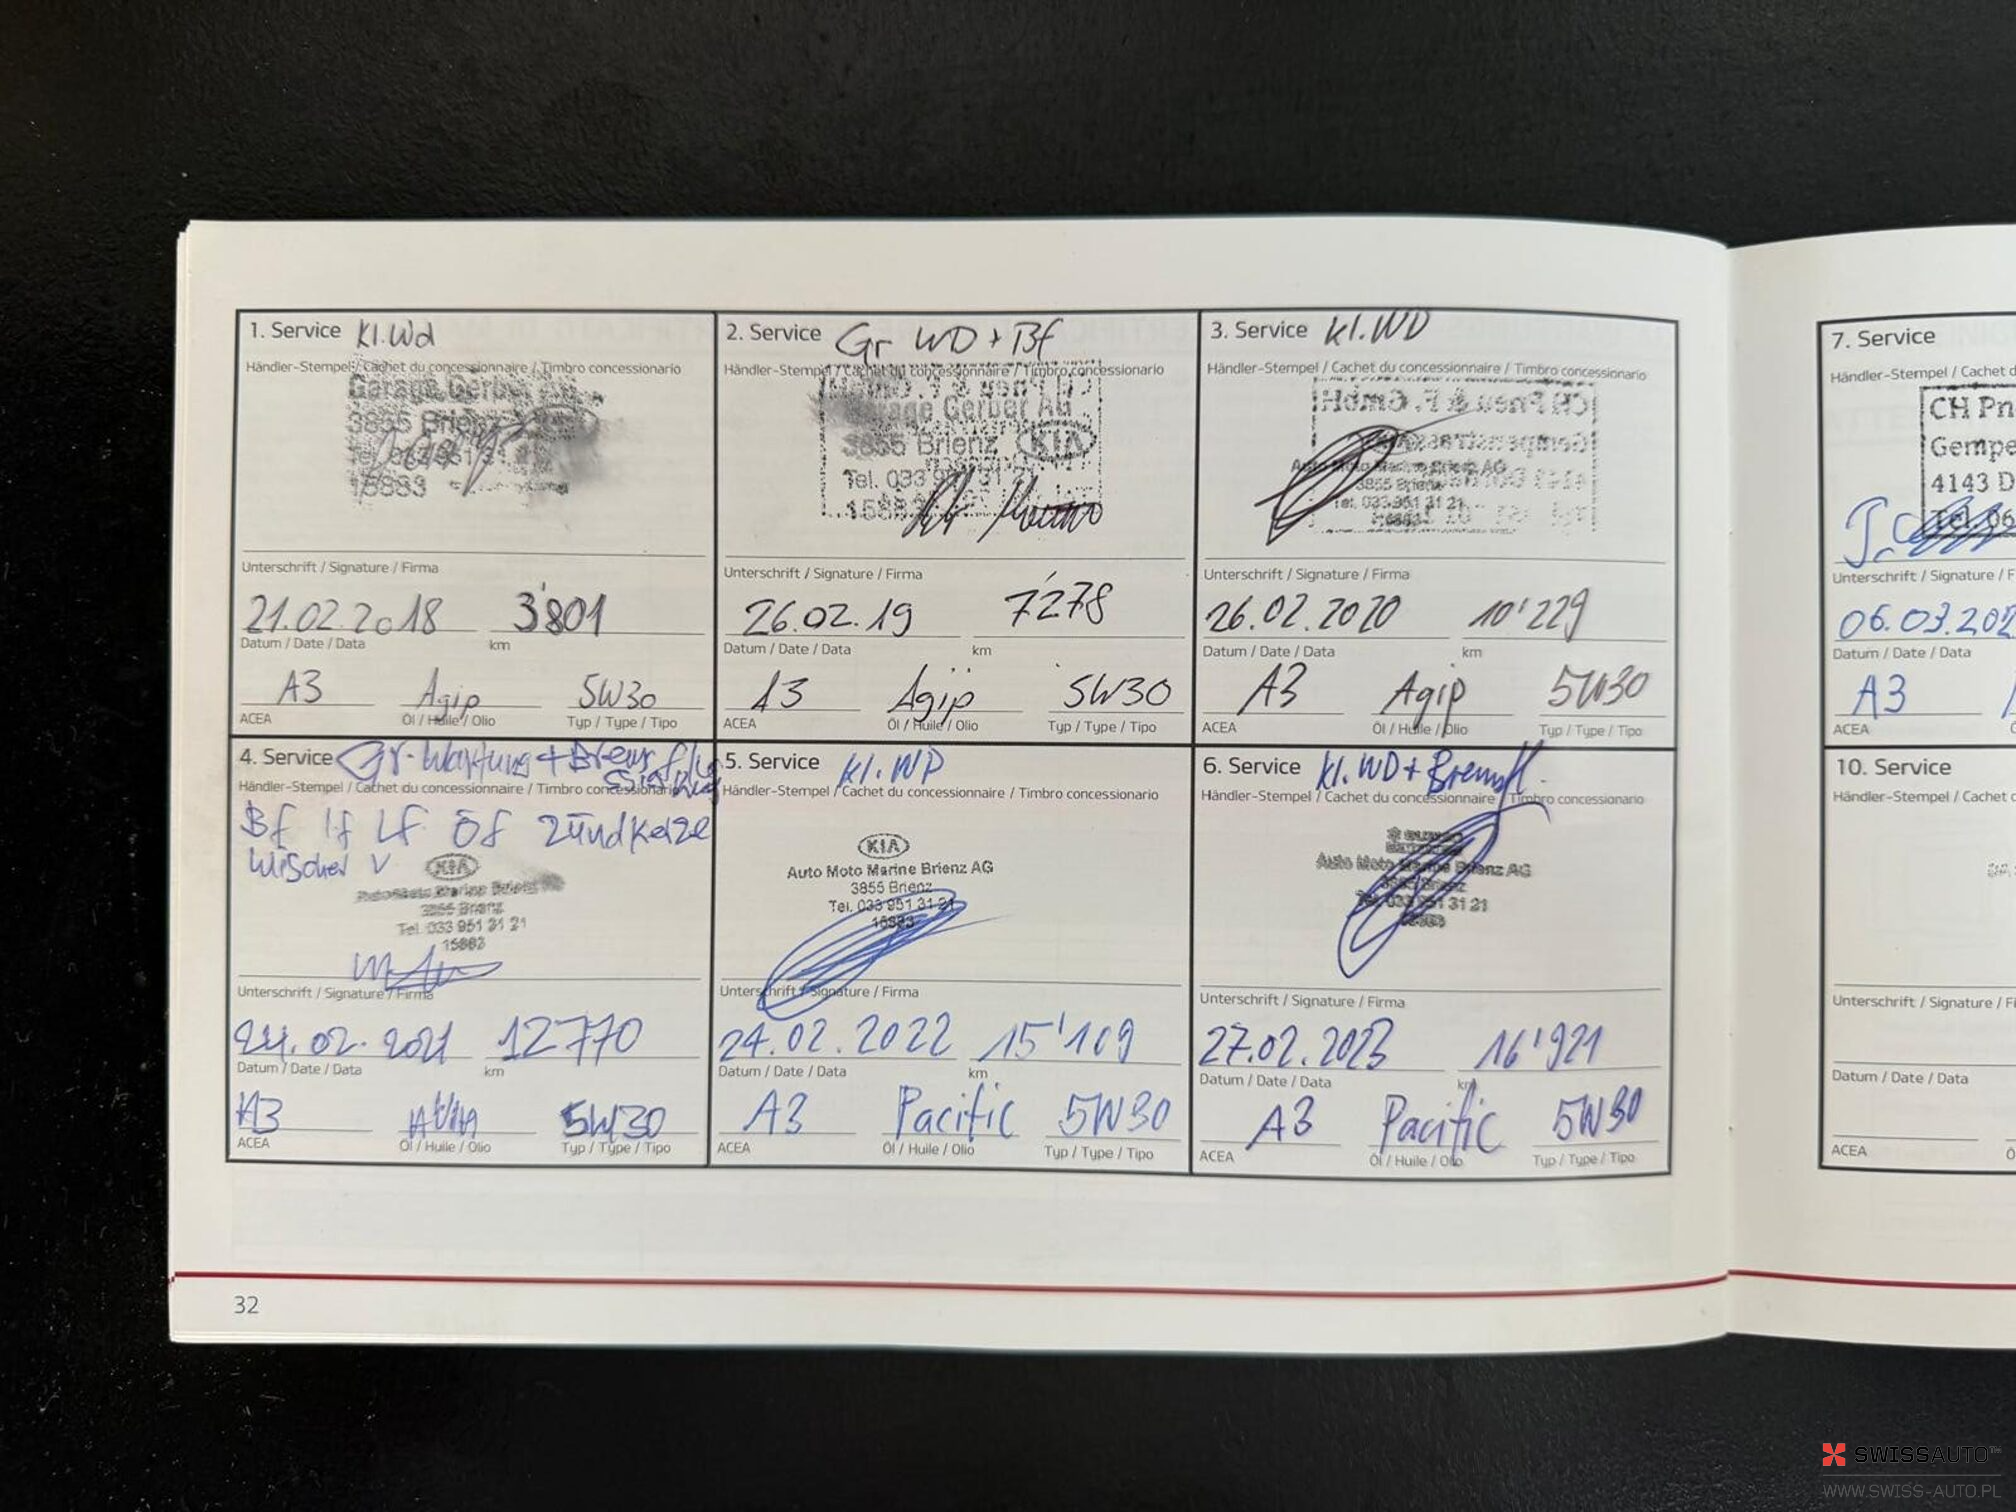 1. Service Kl. Wd
Händler-Stempel / Cachet du concessionnaire / Timbro concessionario
Garage Gerber
3855 Brienz
Tel. 033 951 31 21
15883
Unterschrift / Signature / Firma
21.02.2018 3'801
Datum / Date / Data km
A3 Agip 5W30
ACEA Öl / Huile / Olio Typ / Type / Tipo
2. Service Gr WD + Bf
Händler-Stempel / Cachet du concessionnaire / Timbro concessionario
Garage Gerber AG
3855 Brienz KIA
Tel. 033 951 31 21
15883
Unterschrift / Signature / Firma
26.02.19 7'278
Datum / Date / Data km
A3 Agip 5W30
ACEA Öl / Huile / Olio Typ / Type / Tipo
3. Service Kl. WD
Händler-Stempel / Cachet du concessionnaire / Timbro concessionario
CH Pneu & F. GmbH
Gempenstrasse
Auto Moto Marine Brienz AG
3855 Brienz
Tel. 033 951 31 21
15883
Unterschrift / Signature / Firma
26.02.2020 10'229
Datum / Date / Data km
A3 Agip 5W30
ACEA Öl / Huile / Olio Typ / Type / Tipo
4. Service Gr-Wartung + Brems flüssigkeit
Händler-Stempel / Cachet du concessionnaire / Timbro concessionario
Bf If LF Öf Zündkerze
Wischer V
KIA
Auto Moto Marine Brienz AG
3855 Brienz
Tel. 033 951 31 21
15883
Unterschrift / Signature / Firma
24.02.2021 12770
Datum / Date / Data km
A3 AVIA 5W30
ACEA Öl / Huile / Olio Typ / Type / Tipo
5. Service Kl. WD
Händler-Stempel / Cachet du concessionnaire / Timbro concessionario
KIA
Auto Moto Marine Brienz AG
3855 Brienz
Tel. 033 951 31 21
15883
Unterschrift / Signature / Firma
24.02.2022 15'109
Datum / Date / Data km
A3 Pacific 5W30
ACEA Öl / Huile / Olio Typ / Type / Tipo
6. Service Kl. WD + Bremsfl.
Händler-Stempel / Cachet du concessionnaire / Timbro concessionario
Auto Moto Marine Brienz AG
3855 Brienz
Tel. 033 951 31 21
15883
Unterschrift / Signature / Firma
27.02.2023 16'921
Datum / Date / Data km
A3 Pacific 5W30
ACEA Öl / Huile / Olio Typ / Type / Tipo
32
7. Service
Händler-Stempel / Cachet d
CH Pn
Gempe
4143 D
Tel. 06
Unterschrift / Signature / F
06.03.202
Datum / Date / Data
A3
ACEA
10. Service
Händler-Stempel / Cachet
Unterschrift / Signature / Fi
Datum / Date / Data
ACEA Ö
SWISSAUTO™
WWW.SWISS-AUTO.PL